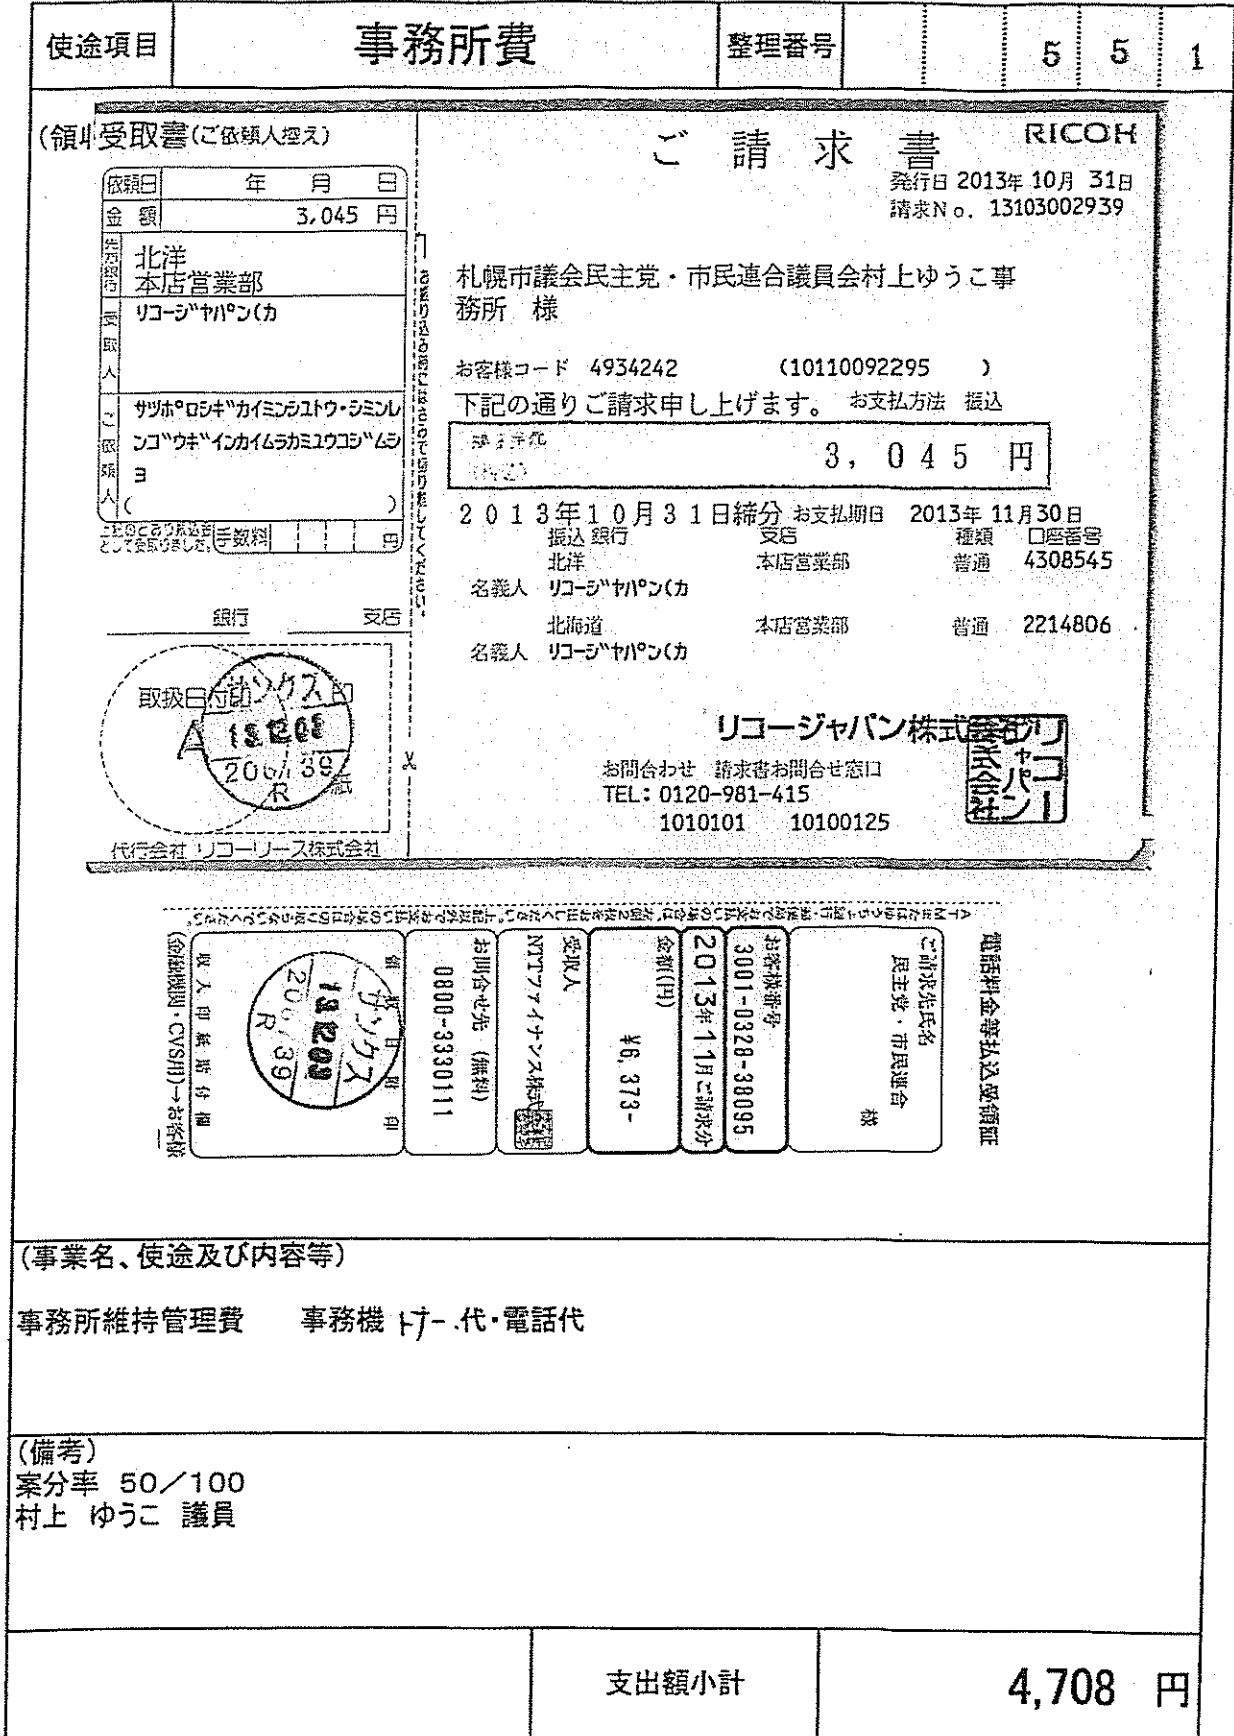 使途項目 事務所費 整理番号 5 5 1
(領収
受取書(ご依頼人控え)
依頼日 年 月 日
金額 3,045 円
先方銀行 北洋
本店営業部
受取人 リコージャパン(カ
ご依頼人 サツポロシギカイミンシユトウ・シミンレ
ンゴウギインカイムラカミユウコジムシ
ヨ
( )
上記のとおり振込金
として受取りました。 手数料 円
銀行 支店
取扱日付印
サンクス
13.12.03
206139
R
代行会社 リコーリース株式会社
ご請求書 RICOH
発行日 2013年 10月 31日
請求No. 13103002939
札幌市議会民主党・市民連合議員会村上ゆうこ事
務所 様
お客様コード 4934242 (10110092295 )
下記の通りご請求申し上げます。 お支払方法 振込
3,045 円
2013年10月31日締分 お支払期日 2013年 11月30日
振込 銀行 支店 種類 口座番号
北洋 本店営業部 普通 4308545
名義人 リコージヤパン(カ
北海道 本店営業部 普通 2214806
名義人 リコージヤパン(カ
リコージャパン株式会社
リコージャパン株式会社
お問合わせ 請求書お問合せ窓口
TEL: 0120-981-415
1010101 10100125
電話料金等払込受領証
ご請求先氏名
民主党・市民連合
様
お客様番号
3001-0328-38095
2013年11月ご請求分
金額(円)
¥6,373-
受取人
NTTファイナンス株式
お問合せ先 (無料)
0800-3330111
領収日附印
サンクス
13.12.03
206139
R
収入印紙貼付欄
(金融機関・CVS用)→お客様
(事業名、使途及び内容等)
事務所維持管理費 事務機 トナー代・電話代
(備考)
案分率 50/100
村上 ゆうこ 議員
支出額小計 4,708 円